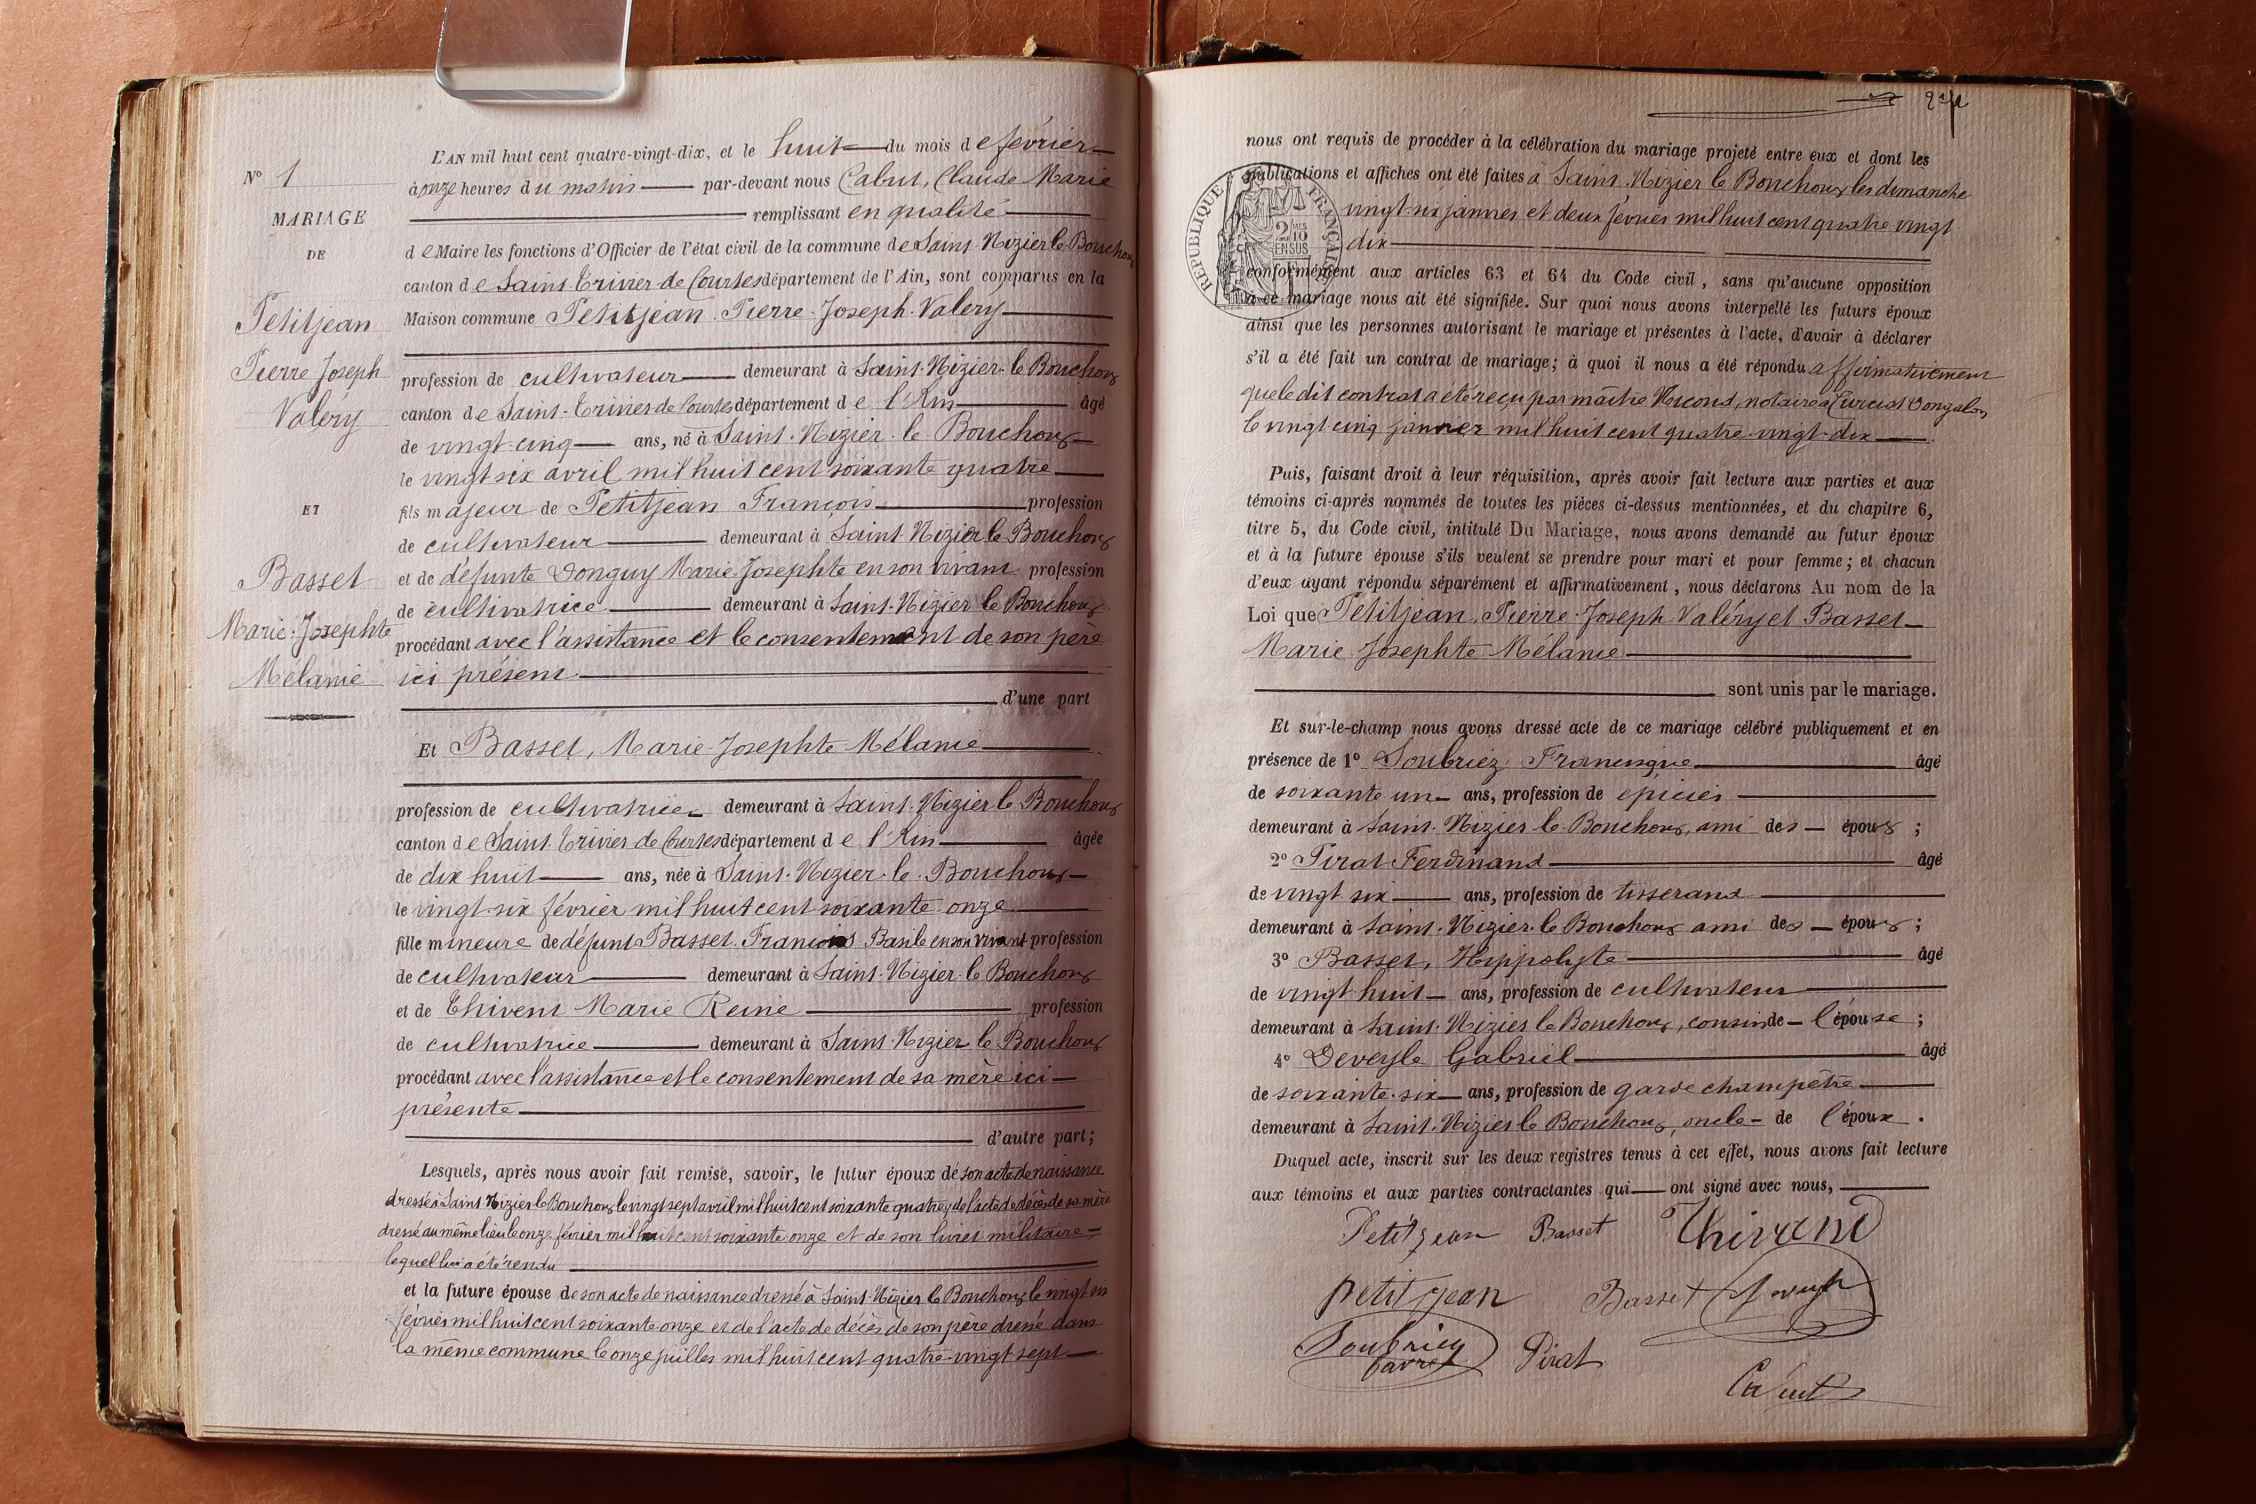 L'AN mil huit cent quatre-vingt-dix, et le huit du mois de février
N° 1
à onze heures du matin par-devant nous Cabut, Claude Marie
MARIAGE
remplissant en qualité
DE
de Maire les fonctions d'Officier de l'état civil de la commune de Saint-Nizier-le-Bouchoux
canton de Saint Trivier de Courtes département de l'Ain, sont comparus en la
Petitjean
Maison commune Petitjean Pierre-Joseph-Valery
Pierre Joseph
profession de cultivateur demeurant à Saint-Nizier-le Bouchoux
Valéry
canton de Saint-Trivier de Courtes département de l'Ain âgé
de vingt-cinq ans, né à Saint-Nizier-le-Bouchoux
le vingt-six avril mil huit cent soixante quatre
ET
fils majeur de Petitjean François profession
de cultivateur demeurant à Saint-Nizier le Bouchoux
Basset
et de défunte Donguy Marie-Josephte en son vivant profession
de cultivatrice demeurant à Saint-Nizier le Bouchoux
Marie-Josephte
procédant avec l'assistance et le consentement de son père
Mélanie
ici présent
d'une part
Et Basset, Marie-Josephte Mélanie
profession de cultivatrice demeurant à Saint-Nizier le Bouchoux
canton de Saint Trivier de Courtes département de l'Ain âgée
de dix huit ans, née à Saint-Nizier-le-Bouchoux
le vingt-six février mil huit cent soixante-onze
fille mineure de défunt Basset François Basile en son vivant profession
de cultivateur demeurant à Saint-Nizier-le Bouchoux
et de Thivent Marie Reine profession
de cultivatrice demeurant à Saint-Nizier le Bouchoux
procédant avec l'assistance et le consentement de sa mère ici
présente
d'autre part;
Lesquels, après nous avoir fait remise, savoir, le futur époux de son acte de naissance
dressé à Saint Nizier le Bouchoux le vingt sept avril mil huit cent soixante quatre, de l'acte de décès de sa mère
dressé au même lieu le onze février mil huit cent soixante onze et de son livret militaire
lequel lui a été rendu
et la future épouse de son acte de naissance dressé à Saint-Nizier le Bouchoux le vingt six
février mil huit cent soixante onze et de l'acte de décès de son père dressé dans
la même commune le onze juillet mil huit cent quatre-vingt sept
nous ont requis de procéder à la célébration du mariage projeté entre eux et dont les
publications et affiches ont été faites à Saint-Nizier le Bouchoux les dimanche
vingt-six janvier et deux février mil huit cent quatre vingt
dix
RÉPUBLIQUE FRANÇAISE
2 10
EN SUS
conformément aux articles 63 et 64 du Code civil, sans qu'aucune opposition
à ce mariage nous ait été signifiée. Sur quoi nous avons interpellé les futurs époux
ainsi que les personnes autorisant le mariage et présentes à l'acte, d'avoir à déclarer
s'il a été fait un contrat de mariage; à quoi il nous a été répondu affirmativement
que le dit contrat a été reçu par maître notaire à Curciat Dongalon
le vingt cinq janvier mil huit cent quatre-vingt-dix
Puis, faisant droit à leur réquisition, après avoir fait lecture aux parties et aux
témoins ci-après nommés de toutes les pièces ci-dessus mentionnées, et du chapitre 6,
titre 5, du Code civil, intitulé Du Mariage, nous avons demandé au futur époux
et à la future épouse s'ils veulent se prendre pour mari et pour femme; et chacun
d'eux ayant répondu séparément et affirmativement, nous déclarons Au nom de la
Loi que Petitjean, Pierre-Joseph-Valéry et Basset
Marie Josephte Mélanie
sont unis par le mariage.
Et sur-le-champ nous avons dressé acte de ce mariage célébré publiquement et en
présence de 1° Soubriez Francisque âgé
de soixante un ans, profession de épicier
demeurant à Saint-Nizier le Bouchoux, ami des époux;
2° Pirat Ferdinand âgé
de vingt six ans, profession de tisserand
demeurant à Saint-Nizier-le Bouchoux ami des époux;
3° Basset, Hippolyte âgé
de vingt-huit ans, profession de cultivateur
demeurant à Saint-Nizier le Bouchoux, cousin de l'épouse;
4° Deveyle Gabriel âgé
de soixante-six ans, profession de garde champêtre
demeurant à Saint-Nizier le Bouchoux, oncle de l'époux.
Duquel acte, inscrit sur les deux registres tenus à cet effet, nous avons fait lecture
aux témoins et aux parties contractantes qui ont signé avec nous,
Petitjean Basset Thivend
petit jean Basset
Pirat
Cabut